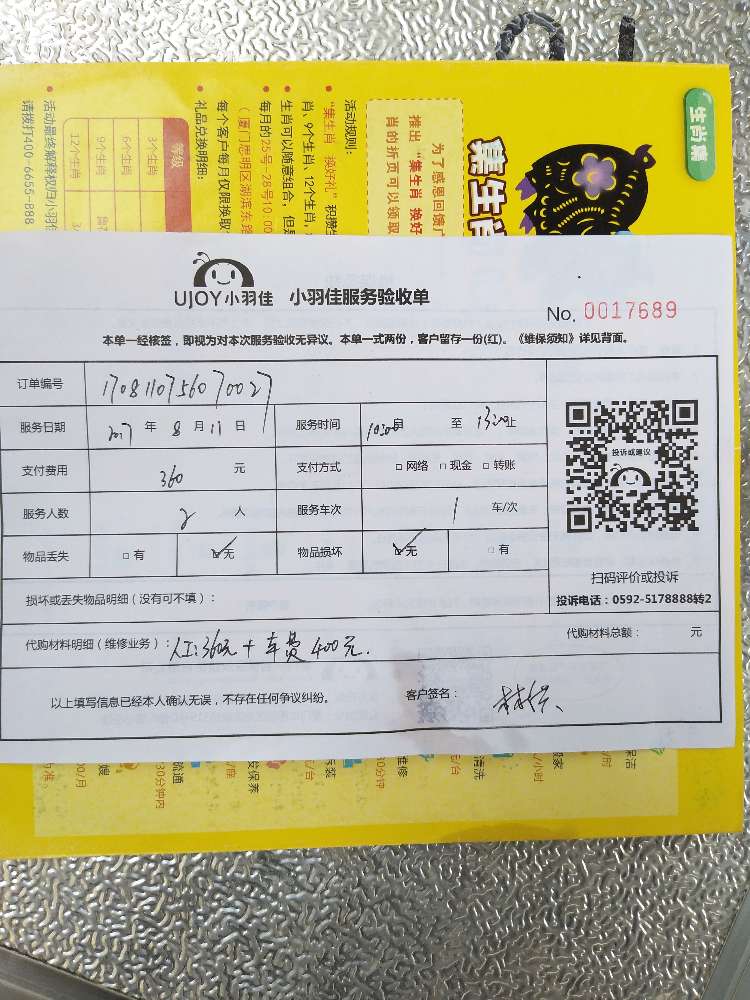 生肖集
集生肖
为了感恩回馈广
推出 "集生肖 换好
肖的折页可以领取
活动规则:
• "集生肖 换好礼" 积攒生
肖、9个生肖、12个生肖,
• 生肖可以随意组合,但是
• 每月的25号-28号10:00
(厦门思明区湖滨东路
每个客户每月仅限换取
• 礼品兑换明细:
等级
3个生肖
6个生肖
9个生肖
12个生肖
• 活动最终解释权归小羽佳
请拨打400-6655-888
UJOY小羽佳 小羽佳服务验收单
No. 0017689
本单一经核签,即视为对本次服务验收无异议。本单一式两份,客户留存一份(红)。《维保须知》详见背面。
订单编号 1708110756070027
服务日期 2017 年 8 月 11 日 服务时间 自 至 止
支付费用 360 元 支付方式 □ 网络 □ 现金 □ 转账
服务人数 2 人 服务车次 1 车/次
物品丢失 □ 有 ☑ 无 物品损坏 ☑ 无 □ 有
投诉或建议
扫码评价或投诉
投诉电话:0592-5178888转2
损坏或丢失物品明细(没有可不填):
代购材料明细(维修业务):人工:360元 + 车费 400元.
代购材料总额: 元
以上填写信息已经本人确认无误,不存在任何争议纠纷。
客户签名:
保洁
/小时
清洗
元/台
维修
30分钟
元/台
发保养
/座
疏通
30分钟内
嫂
00/月